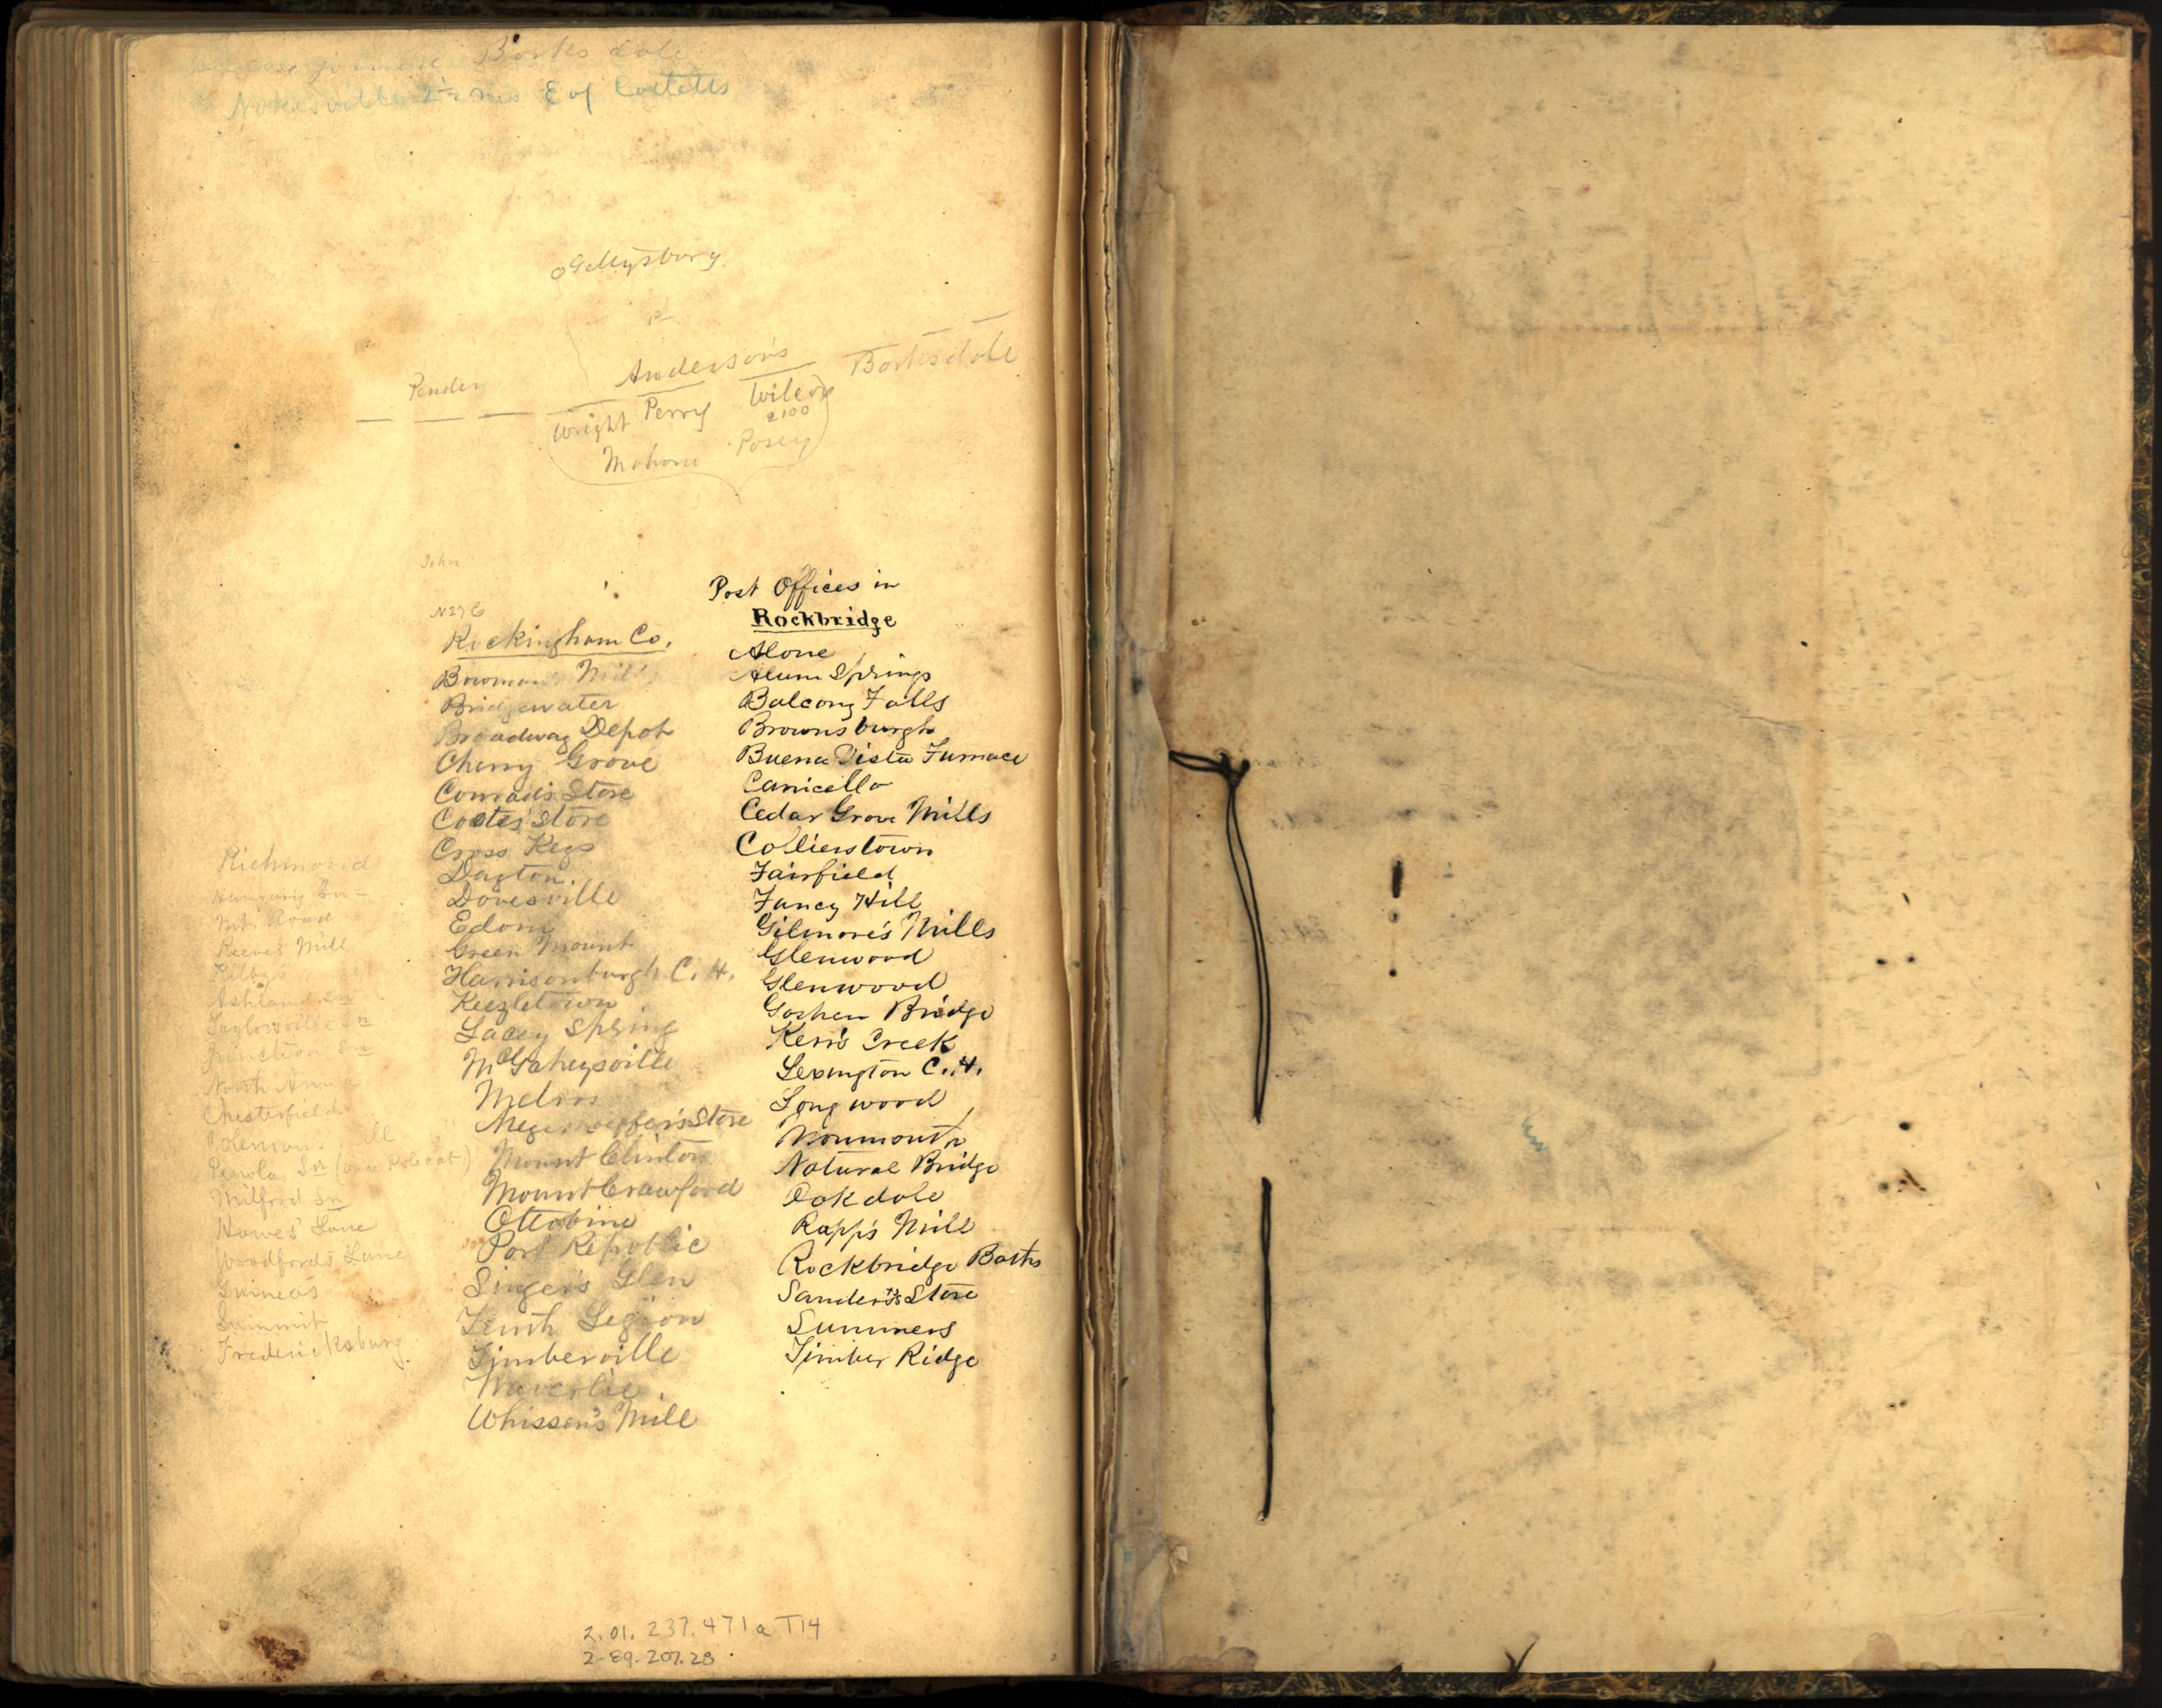 Barksdale
Nokesville 2½ ms E of Catletts
Gettysburg
Anderson's
Barksdale
Pender
Wright Perry Wilcox
2100
Mahone Posey
John
N27E
Post Offices in
Rockbridge
Alone
Alum Springs
Balcony Falls
Brownsburgh
Buena Vista Furnace
Canicello
Cedar Grove Mills
Collierstown
Fairfield
Fancy Hill
Gilmore's Mills
Glenwood
Glenwood
Goshen Bridge
Kerr's Creek
Lexington C.H.
Longwood
Monmouth
Natural Bridge
Oakdale
Rapp's Mill
Rockbridge Baths
Sanders's Store
Summers
Timber Ridge
Rockingham Co.
Bowman's Mill
Bridgewater
Broadway Depot
Cherry Grove
Conrad's Store
Cootes' Store
Cross Keys
Dayton
Dovesville
Edom
Green Mount
Harrisonburgh C.H.
Keezletown
Lacey Spring
McGaheysville
Melrose
Store
Mount Clinton
Mount Crawford
Ottobine
Port Republic
Singer's Glen
Tenth Legion
Timberville
Waverlie
Whissen's Mill
Richmond
Hungary Sn
Mt. Road
Reeves Mill
Kilbys
Ashland Sn
Taylorsville Sn
Junction Sn
North Anna
Chesterfield
Coleman's Mill
Penola Sn (once Polecat)
Milford Sn
Hawes' Lane
Woodford's Lane
Guinea's
Summit
Fredericksburg
2.01.237.471a T14
2-89.207.28